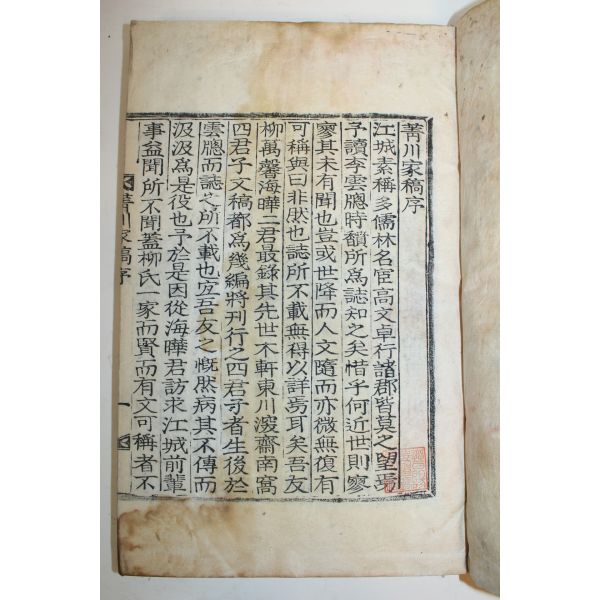 菁川家稿序
江城素稱多儒林名宦高文卓行諸郡皆莫之望焉
予讀李雲牕時馩所爲誌知之矣惜乎何近世則寥
寥其未有聞也豈或世降而人文隨而亦微無復有
可稱與曰非然也誌所不載無得以詳焉耳矣吾友
柳萬馨海曄二君最錄其先世木軒東川溭齋南窩
四君子文稿都爲幾編將刊行之四君子者生後於
雲牕而誌之所不載也宜吾友之慨然病其不傳而
汲汲爲是役也予於是因從海曄君訪求江城前輩
事益聞所不聞蓋柳氏一家而賢而有文可稱者不
菁川家稿序
一